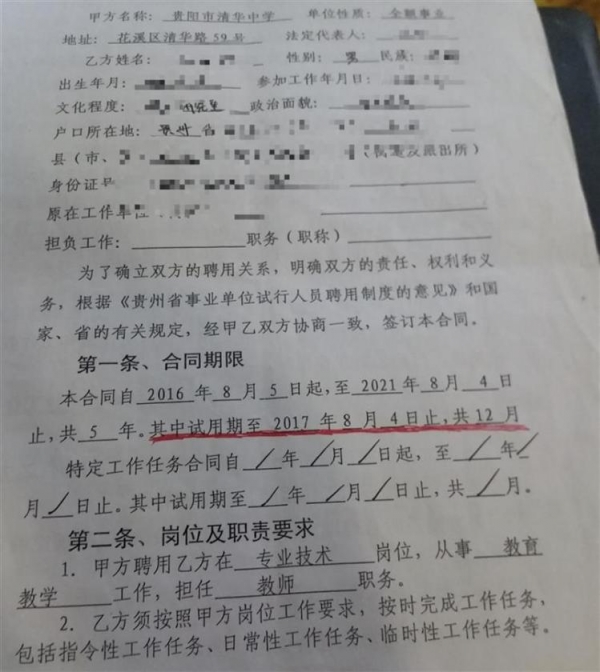 甲方名称：贵阳市清华中学 单位性质：全额事业
地址：花溪区清华路59号 法定代表人：
乙方姓名： 性别：男 民族：
出生年月： 参加工作年月日：
文化程度： 政治面貌：
户口所在地： 省
县（市、 派出所）
身份证号
原在工作单位
担负工作： 职务（职称）
为了确立双方的聘用关系，明确双方的责任、权利和义
务，根据《贵州省事业单位试行人员聘用制度的意见》和国
家、省的有关规定，经甲乙双方协商一致，签订本合同。
第一条、合同期限
本合同自 2016 年 8 月 5 日起，至 2021 年 8 月 4 日
止，共 5 年。其中试用期至 2017 年 8 月 4 日止，共 12 月
特定工作任务合同自 / 年 / 月 / 日起，至 / 年 /
月 / 日止。其中试用期至 / 年 / 月 / 日止，共 / 月。
第二条、岗位及职责要求
1. 甲方聘用乙方在 专业技术 岗位，从事 教育
教学 工作，担任 教师 职务。
2. 乙方须按照甲方岗位工作要求，按时完成工作任务，
包括指令性工作任务、日常性工作任务、临时性工作任务等。